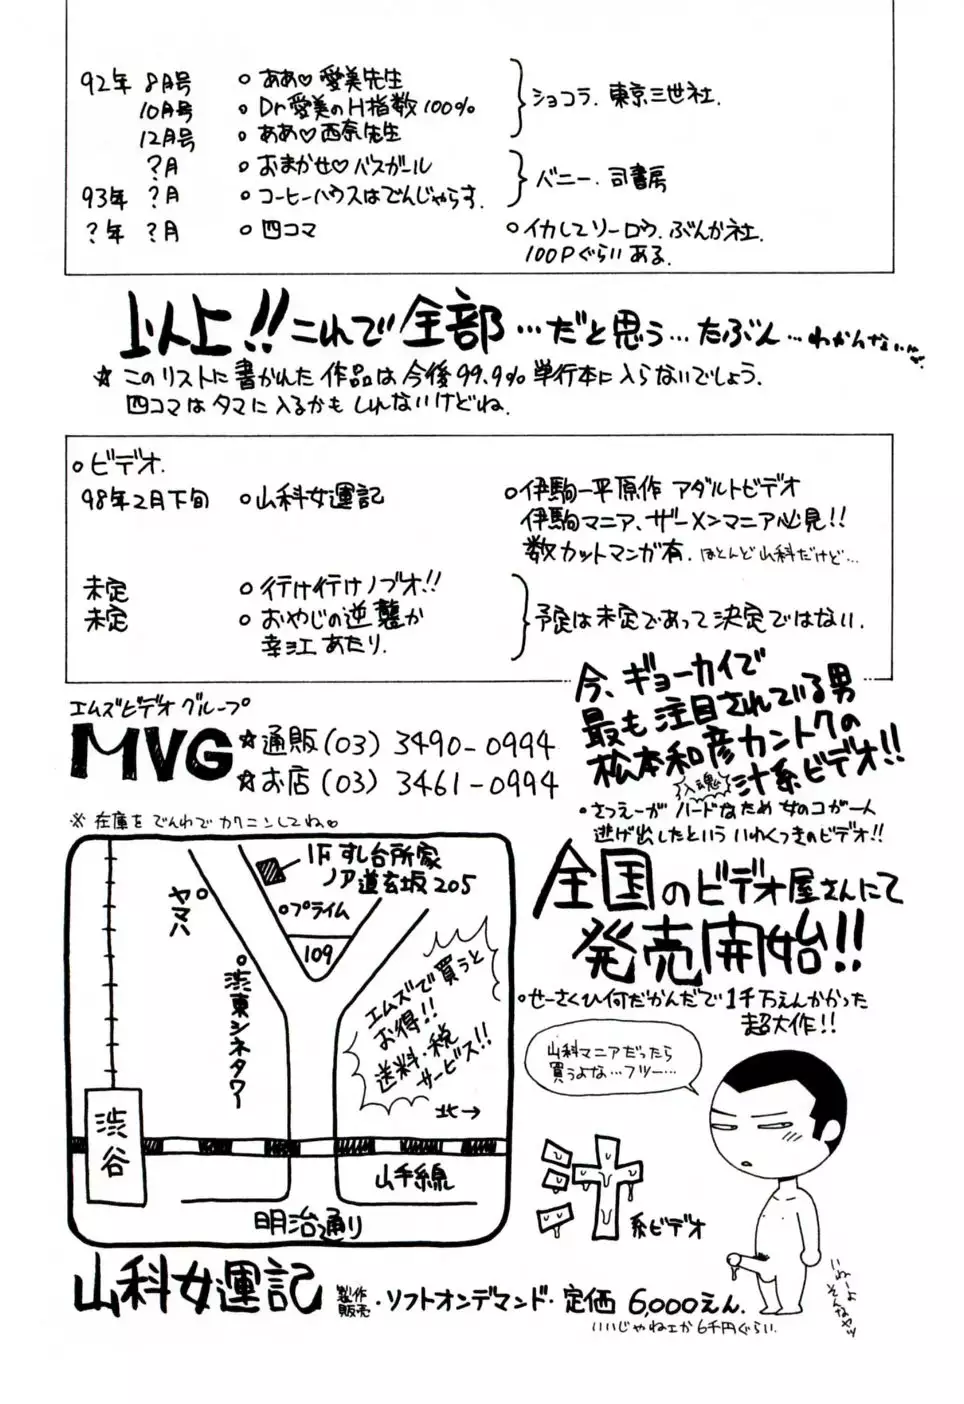 92年 8月号 ○ ああ♡愛美先生
10月号 ○ Dr愛美のH指数100%
12月号 ○ ああ♡西奈先生
ショコラ. 東京三世社.
?月 ○ おまかせ♡バスガール
93年 ?月 ○ コーヒーハウスはでんじゃらす.
バニー. 司書房
?年 ?月 ○ 四コマ ○イカしてソーロウ. ぶんか社.
100Pぐらいある.
以上!! これで全部…だと思う…たぶん…わかんない
☆ このリストに書かれた作品は今後99.9%単行本に入らないでしょう.
四コマはタマに入るかもしれないけどね.
○ビデオ.
98年2月下旬 ○山科女運記 ○伊駒一平原作 アダルトビデオ
伊駒マニア、ザーメンマニア必見!!
数カットマンガ有. ほとんど山科だけど…
未定 ○行け行けノブオ!!
未定 ○おやじの逆襲か
幸江あたり.
予定は未定であって決定ではない.
エムズビデオグループ
MVG ☆通販(03) 3490-0994
☆お店(03) 3461-0994
※ 在庫をでんわでカクニンしてね♡
今、ギョーカイで
最も注目されている男
松本和彦カントクの
入魂 汁系ビデオ!!
・さつえーがハードなため女のコが一人
逃げ出したといういわくつきのビデオ!!
全国のビデオ屋さんにて
発売開始!!
○せーさくひ何だかんだで1千万えんかかった
超大作!!
1Fすし台所家
ノア道玄坂205
○プライム
109
ヤマハ
渋東シネタワー
エムズで買うと
お得!!
送料・税
サービス!!
北→
渋谷
山手線
明治通り
山科マニアだったら
買うよな…フツー…
汁系ビデオ
いねーよ
そんなヤツ
山科女運記 製作販売・ソフトオンデマンド・定価 6,000えん.
いいじゃねェか6千円ぐらい.